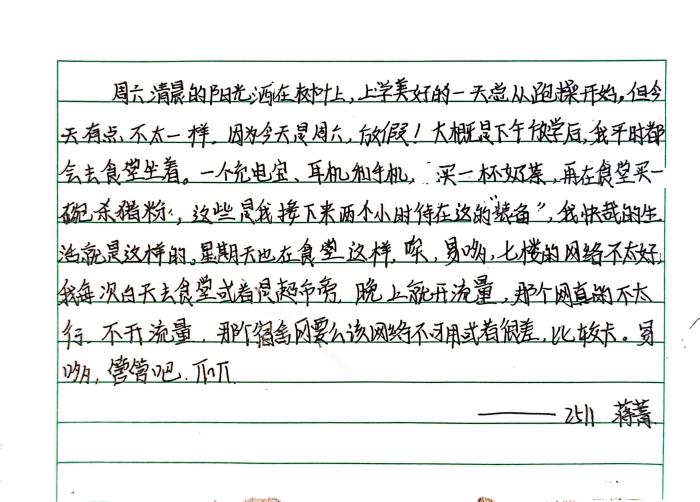 周六清晨的阳光洒在树叶上，上学美好的一天总从跑操开始。但今
天有点不太一样，因为今天是周六，放假！大概是下午放学后，我平时都
会去食堂坐着。一个充电宝、耳机和手机，买一杯奶茶，再在食堂买一
碗杀猪粉，这些是我接下来两个小时待在这的"装备"，我快哉的生
活就是这样的。星期天也在食堂这样，唉，易哟，七楼的网络不太好，
我每次白天去食堂或者是超市旁，晚上就开流量，那个网真的不太
行。不开流量，那个宿舍网要么该网络不可用或者很差，比较卡。易
哟，管管吧。
——— 2511 蒋菁